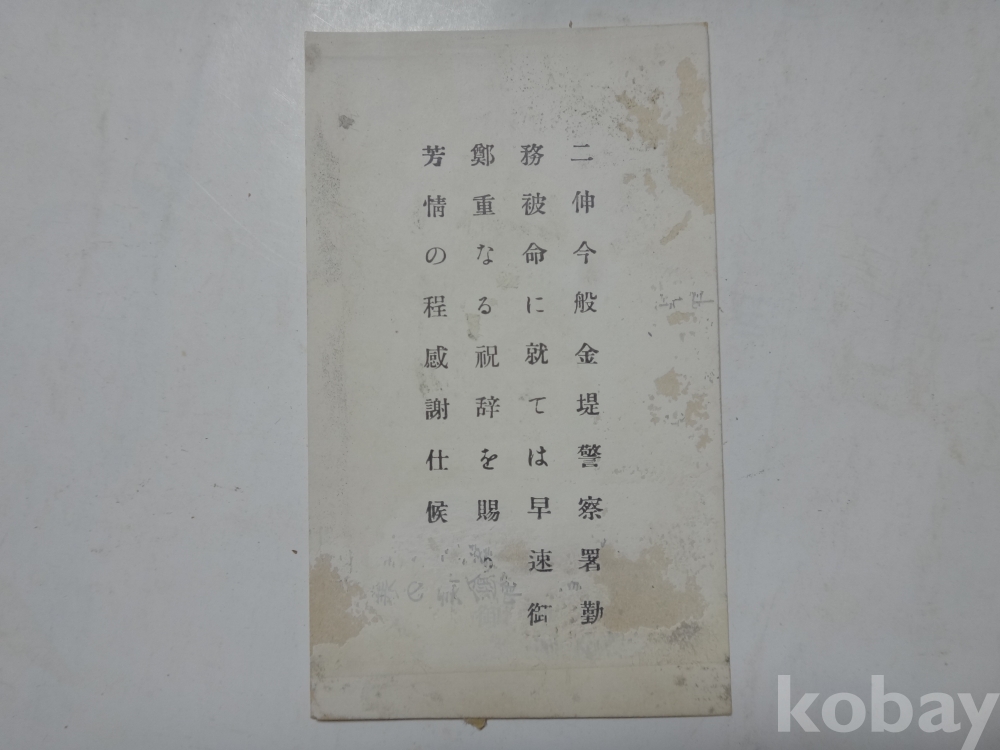 二伸今般金堤警察署勤
務被命に就ては早速御
鄭重なる祝辞を賜り
芳情の程感謝仕候
kobay